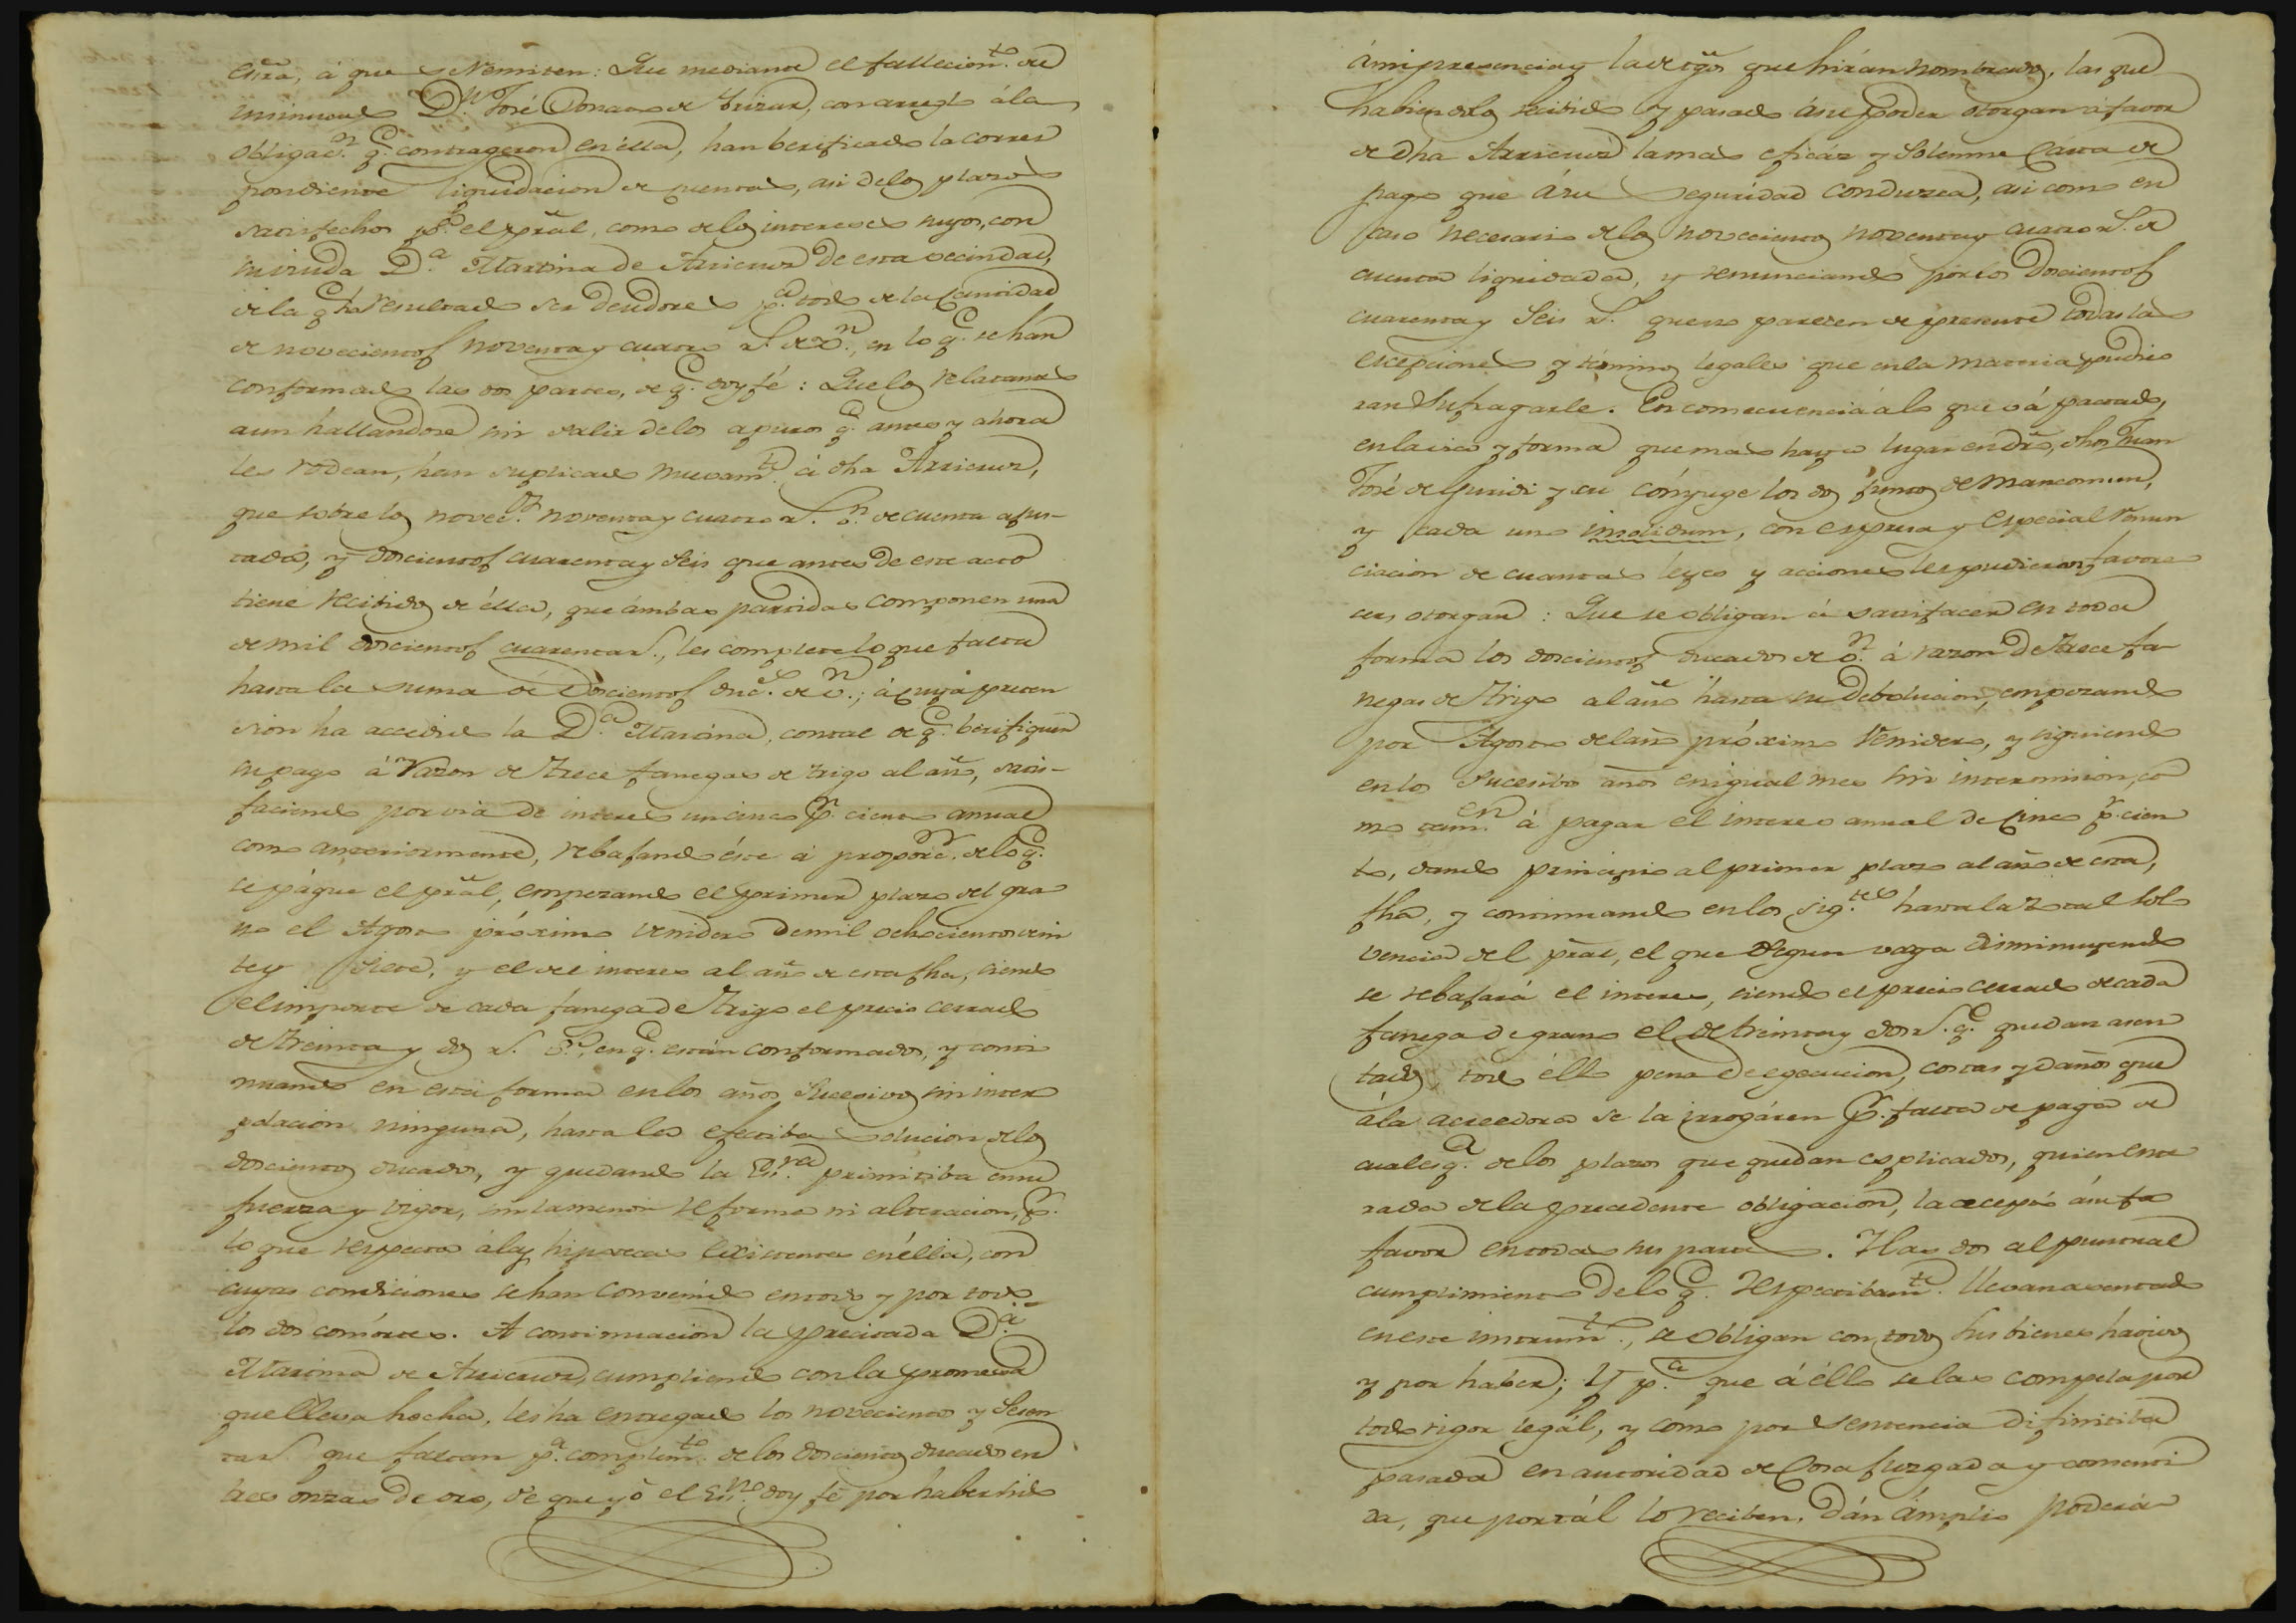 Esc.ra, á que se remiten: Que mediante el fallecim.to de
insinuado D.n José Donato de Irizar, con arreglo á la
obligac.n q.e contrageron en ella, han berificado la corres
pondiente liquidacion de cuentas, asi de los plazos
satisfechos p.r el pral, como de los intereses suyos, con
su viuda D.a Martina de Arricruz de esta vecindad,
de la q.e ha resultado ser deudores p.r todo de la Cantidad
de novecientos noventa y cuatro r.s de v.n, en lo q.e se han
conformado las dos partes, de q.e doy fé: Que los relatantes
aun hallandose sin salir de los apuros q.e antes y ahora
les rodean, han suplicado nuevam.te á dha Arricruz,
que sobre los novec.tos noventa y cuatro r.s v.n de cuenta ajus-
tada, y doscientos cuarenta y seis que antes de este acto
tiene recibidos de élla, que ámbas partidas componen una
de mil doscientos cuarenta r.s, les complete lo que falta
hasta la suma de Doscientos duc.s de v.n; á cuya preten
sion ha accedido la D.a Martina, con tal de q.e berifiquen
su pago á razon de trece fanegas de trigo al año, satis-
faciendo por via de interes un cinco p.r ciento anual
como anteriormente, rebajando éste á proporc.n de lo q.e
se págue el pral, empezando el primer plazo del gra
no el Agosto próximo venidero de mil ochocientos vein
te y siete, y el del interes al año de esta fha, siendo
el importe de cada fanega de trigo el precio cerrado
de treinta y dos r.s v.n, en q.e están conformados, y conti
nuando en esta forma en los años sucesivos sin inter
polacion ninguna, hasta la efectiba solucion de los
doscientos ducados, y quedando la Es.ra primitiba en su
fuerza y vigor, sin la menor reforma ni alteracion, p.r
lo que respecta á las hipotecas existentes en élla, con
cuyas condiciones se han convenido en todo y por todo
los dos consortes. A continuacion la precitada D.a
Martina de Arricruz, cumpliendo con la promesa
que lleva hecha, les ha entregado los novecientos y sesen
ta r.s que faltan p.a complem.to de los doscientos ducados en
tres onzas de oro, de que yo el Es.no doy fé por haber sido
á mi presencia y la de tgos que hirán nombrados, las que
habiendolos recibido y pasado á su poder otorgan á favor
de dha Arricruz la mas eficáz y solemne Carta de
pago que á su seguridad conduzca, asi como en
caso necesario de los novecientos noventa y cuatro r.s de
cuenta liquidada, y renunciando por los Doscientos
cuarenta y seis r.s que no parecen de presente todas las
escepciones y términos legales que en la materia pudie
ran sufragarle. En consecuencia á lo que vá pactado,
en la via y forma que mas haya lugar en dro, dhos Juan
José de Guridi y su cónyuge los dos juntos de mancomun,
y cada uno insolidum, con espresa y especial renun
ciacion de cuantas leyes y acciones les pudieran favore
cer, otorgan: Que se obligan á satisfacer en toda
forma los doscientos ducados de v.n á razon de trece fa-
negas de trigo al año hasta su debolucion, empezando
por Agosto del año próximo venidero, y siguiendo
en los sucesibos años en igual mes sin intermision, co
mo tam.en á pagar el interes anual de Cinco p.r cien
to, dando principio al primer plazo al año de esta
fha, y continuando en los sig.tes hasta la total sol
vencia del pral, el que segun vaya disminuyendo
se rebajará el interes, siendo el precio cerrado de cada
fanega de grano el de treinta y dos r.s q.e quedan asen
tados, todo éllo pena de egecucion, costas y daños que
á la acreedora se la irrogáren p.r falta de paga de
cualesq.a de los plazos que quedan esplicados, quien ente
rada de la precedente obligacion, la acepta á su fa
favor en todas sus partes. Y las dos al puntual
cumplimiento de lo q.e respectibam.te llevan asentado
en este instrum.to, se obligan con todos sus bienes havidos
y por haber; Y p.a que á éllo se las compela por
todo rigor legál, y como por sentencia difinitiba
pasada en autoridad de Cosa juzgada y consenti
da, que por tál lo reciben, Dán ámplio poder á